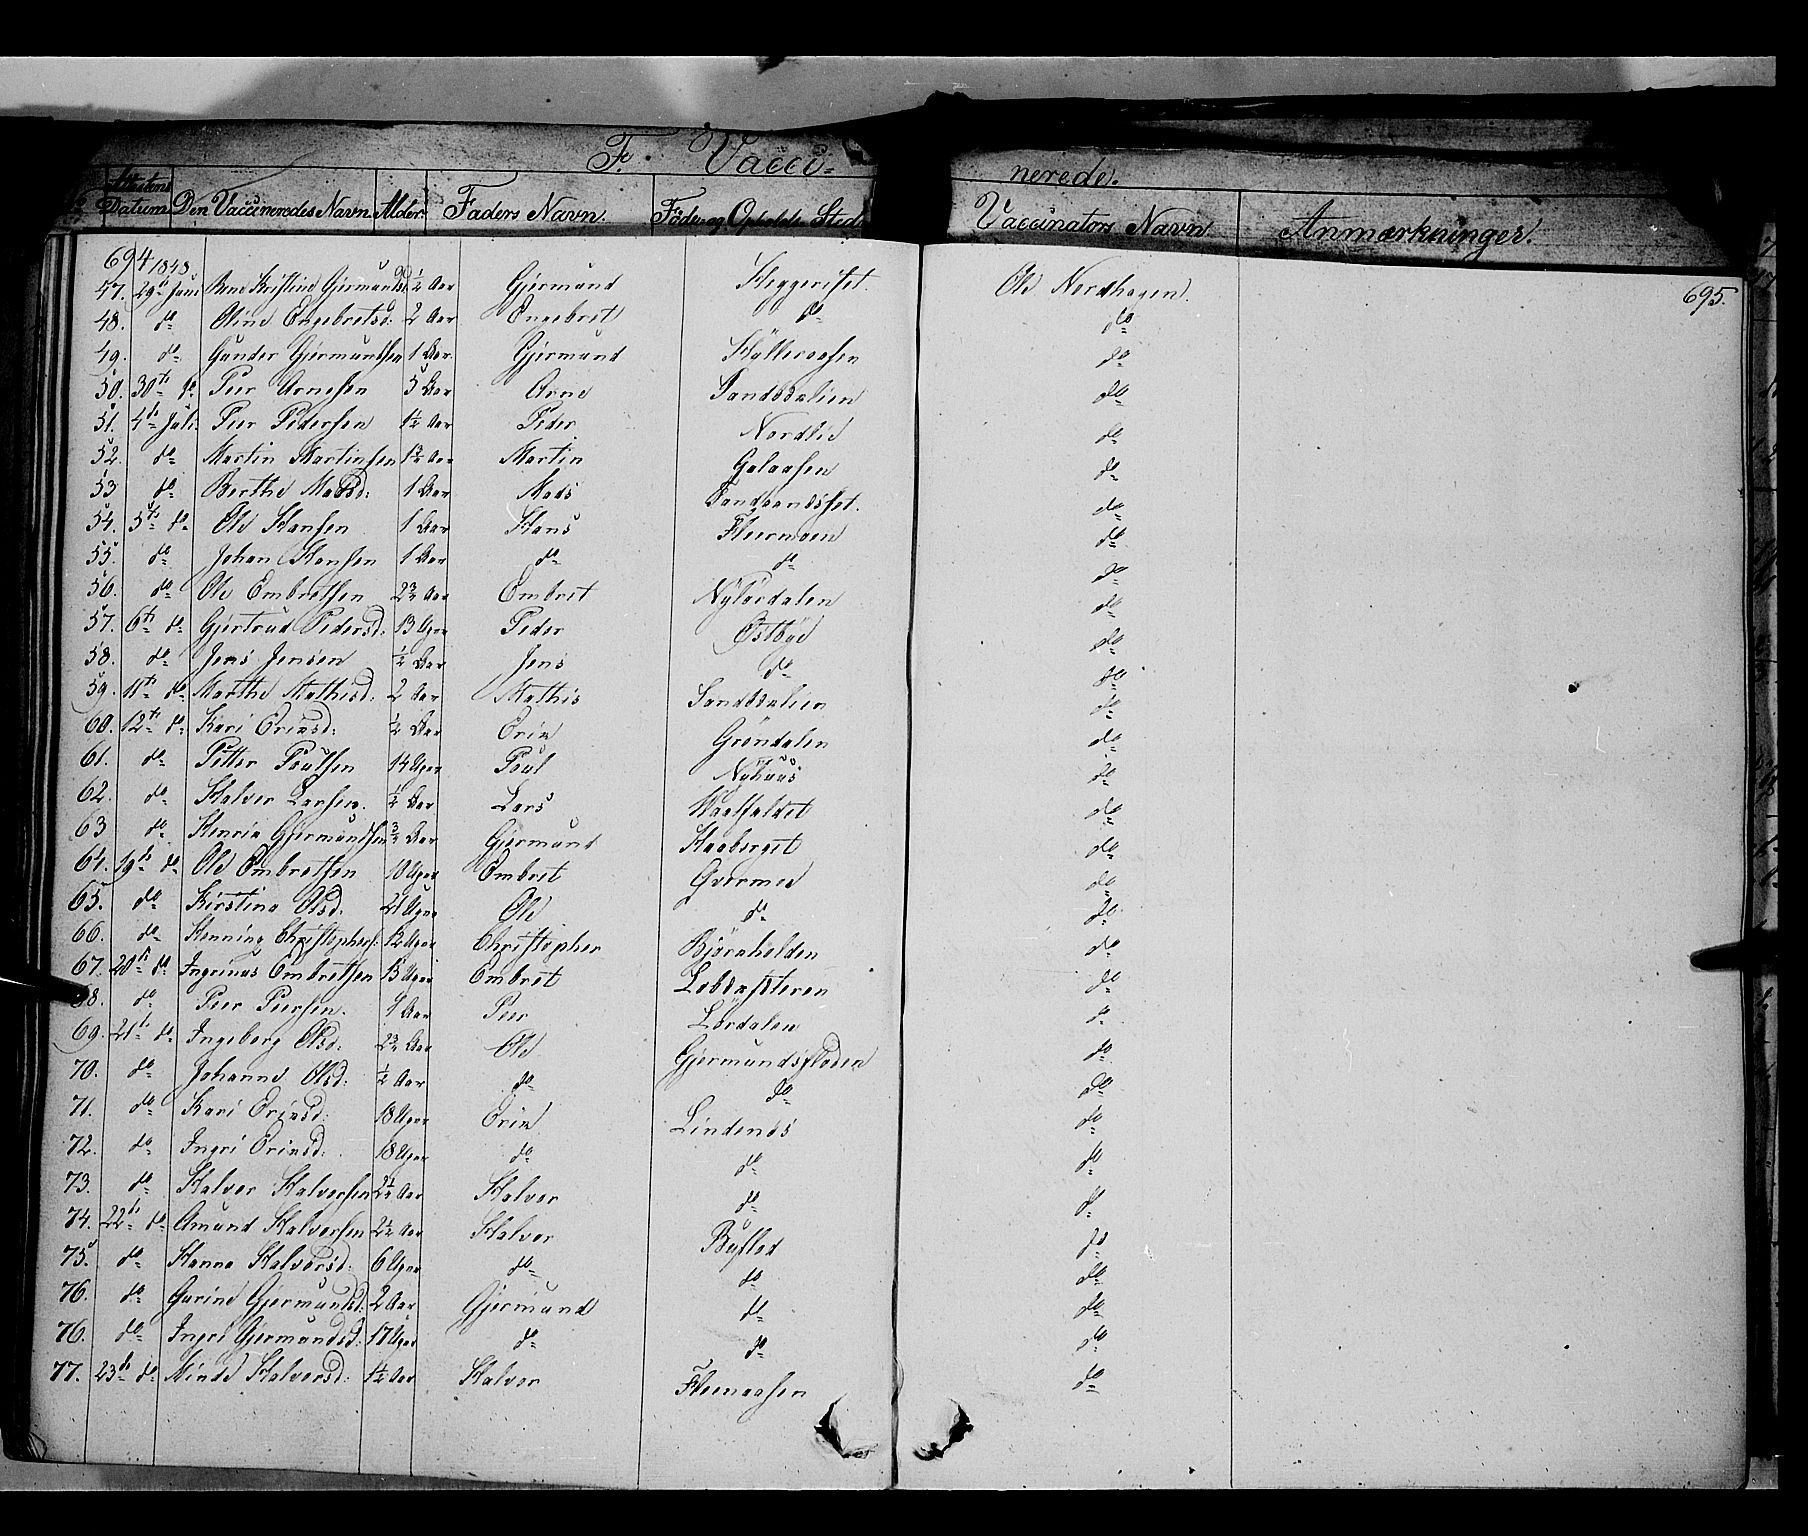 F. Vacci- nerede.
Attestens Datum Den Vaccineredes Navn Alder Faders Navn. Föde- og Opholds-Sted Vaccinators Navn Anmærkninger.
694 1848. 695.
47. 29de Juni Anne Kristine Gjermundsd: ½ Aar Gjermund Heggeriset. Ole Nordhagen.
48. do Oline Engebretsd: 2 Aar Engebret do do
49. do Gunder Gjermundsen 1 Aar Gjermund do
50. 30te do Peer Arnesen 5 Aar Arne Sandsdalien do
51. 4de Juli Peer Pedersen 1½ Aar Peder Nordlie do
52. do Martin Martinsen Aar Martin Galaasen do
53 do Berthe Madsd: 1 Aar Mads do
54. 5te do Ole Hansen 1 Aar Hans Fleermoen do
55. do Johan Hansen 1 Aar do do do
56. do Ole Embretsen Aar Embret Nylördalen do
57. 6te do Gjertrud Pedersd: 13 Uger Peder Östbye do
58. do Jens Jensen ½ Aar Jens do do
59. 11te do Marthe Mathisd: 2 Aar Mathis Sandsdalien do
60. 12te do Kari Eriksd: ½ Aar Erik Gröndalen do
61. do Petter Poulsen 14 Uger Poul Nyhuus do
62. do Halvor Larsen. ½ Aar Lars do
63 do Henrik Gjermundsen Aar Gjermund Haaberget do
64. 19de do Ole Embretsen 10 Uger Embret do
65. do Kirstine Olsd: 21 Uger Ole do do
66. do Henning Christophers: 12 Uger Christopher Björnholden do
67. 20de do Embretsen 13 Uger Embret do
68. do Peer Peersen. Aar Peer Lördalen do
69. 21de do Ingeborg Olsd: Aar Ole Gjermundsfloden do
70. do Johanne Olsd: ½ Aar do do do
71. do Kari Eriksd: 18 Uger Erik Lindenäs do
72. do Ingri Eriksd: 18 Uger do do do
73. do Halvor Halvorsen 2½ Aar Halvor do do
74. 22de do Amund Halvorsen 2½ Aar Halvor Byflod do
75. do Hanna Halvorsd: 6 Uger do do do
76. do Gurine Gjermundsd: 2 Aar Gjermund do do
76. do Ingri Gjermundsd: 17 Uger do do do
77. 23de do Minde Halvorsd: 1½ Aar Halvor do